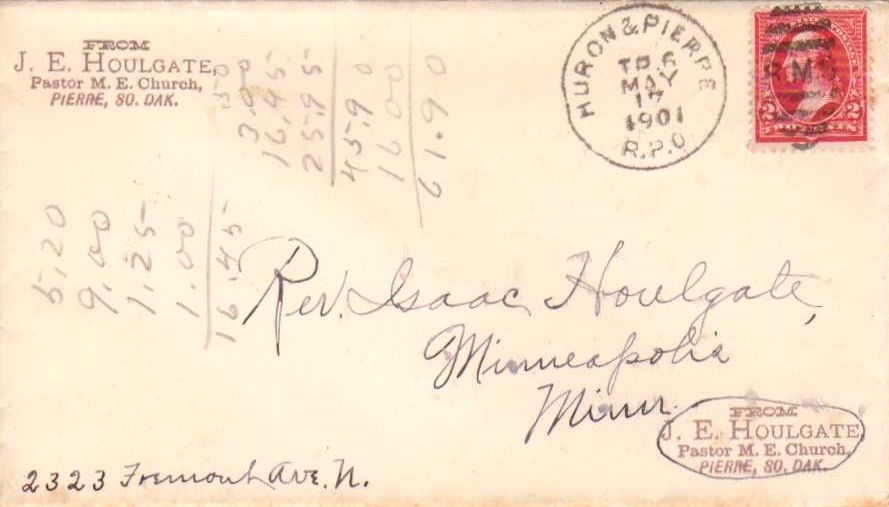 FROM
J. E. HOULGATE,
Pastor M. E. Church,
PIERRE, SO. DAK.
HURON & PIERRE
TR 6
MAY
17
1901
R.P.O.
R.M.S
2 2
5,20
9.00
1.25
1.00
16.45
50
3.00
16,45
25.95
45.90
16 00
61.90
Rev. Isaac Houlgate,
Minneapolis
Minn.
2323 Fremont Ave. N.
FROM
J. E. HOULGATE,
Pastor M. E. Church,
PIERRE, SO. DAK.